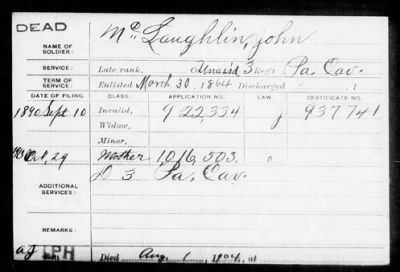 DEAD
NAME OF SOLDIER: McLaughlin, John
SERVICE: Late rank, Unass'd 3 Reg't Pa. Cav.
TERM OF SERVICE: Enlisted March 30, 1864 Discharged 1
DATE OF FILING. CLASS. APPLICATION NO. LAW. CERTIFICATE NO.
1890 Sept 10 Invalid, 922,334 J 937741
Widow,
Minor,
Oct, 29 Mother 1016,503.
ADDITIONAL SERVICES: D 3 Pa. Cav.
REMARKS:
Died Aug 1, 1904, at